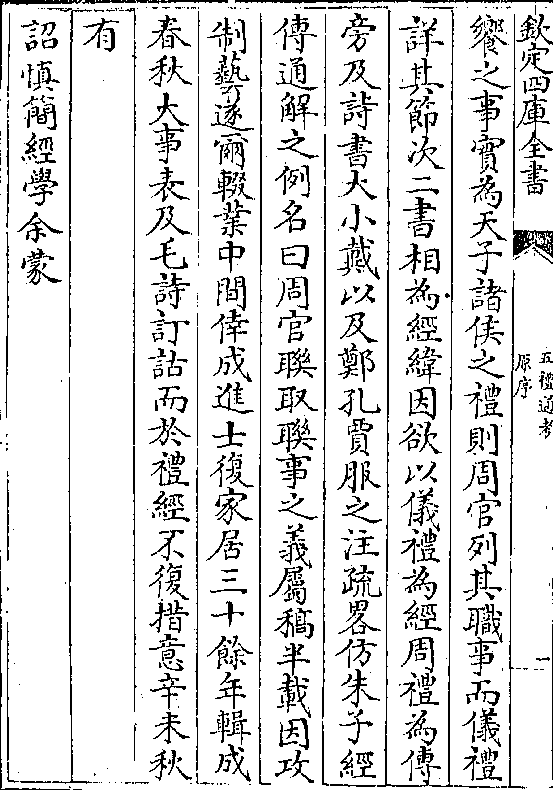 欽定四庫全書
五禮通考
原序
一
饗之事實為天子諸侯之禮則周官列其職事而儀禮
詳其節次二書相為經緯因欲以儀禮為經周禮為傳
旁及詩書大小戴以及鄭孔賈服之注疏畧仿朱子經
傳通解之例名曰周官聯取聯事之義屬稿半載因攻
制藝遂爾輟業中間倖成進士復家居三十餘年輯成
春秋大事表及毛詩訂詁而於禮經不復措意辛未秋
有
詔慎簡經學余蒙